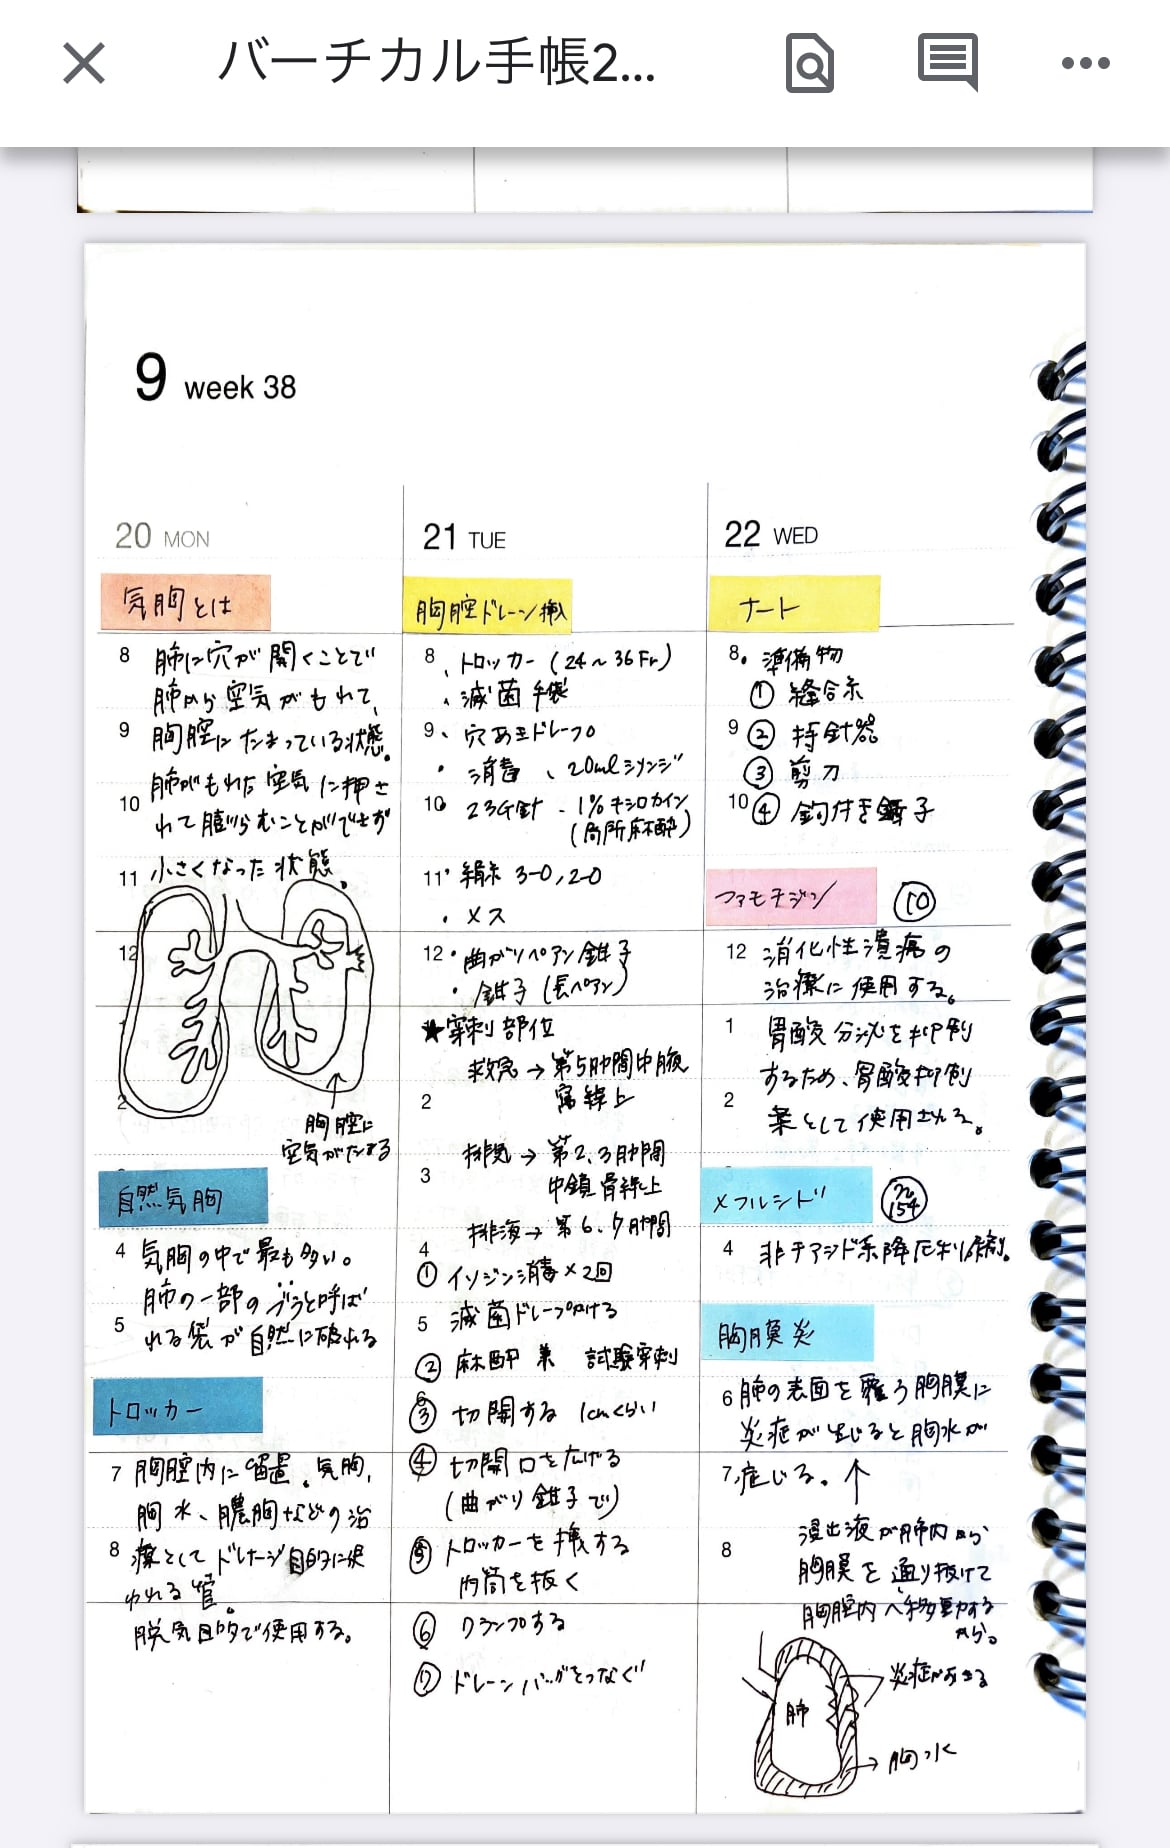 バーチカル手帳2...
9 week 38
20 MON
気胸とは
8 肺に穴が開くことで
肺から空気がもれて、
9 胸腔にたまっている状態。
肺がもれた空気に押さ
10 れて膨らむことができず
11 小さくなった状態。
12
2
胸腔に
空気がたまる
自然気胸
4 気胸の中で最も多い。
肺の一部のブラと呼ば
5 れる袋が自然に破れる
トロッカー
7 胸腔内に留置。気胸、
胸水、膿胸などの治
8 療としてドレナージ目的に使
われる管。
脱気目的で使用する。
21 TUE
胸腔ドレーン挿入
8 、トロッカー (24～36Fr)
、滅菌手袋
9 、穴あきドレープ
・消毒 、20mlシリンジ
10 ・23G針 ・1%キシロカイン
(局所麻酔)
11 ・絹糸 3-0, 2-0
・メス
12 ・曲がりペアン鉗子
・鉗子 (長ペアン)
★穿刺部位
救急→第5肋間中腋
2 窩線上
排気→第2、3肋間
3 中鎖骨線上
排液→第6、7肋間
4
① イソジン消毒×2回
5 滅菌ドレープかける
② 麻酔兼 試験穿刺
6
③ 切開する 1cmくらい
④ 切開口を広げる
(曲がり鉗子で)
⑤ トロッカーを挿入する
内筒を抜く
⑥ クランプする
⑦ ドレーンバッグをつなぐ
22 WED
ナート
8 ・準備物
① 縫合糸
9 ② 持針器
③ 剪刀
10 ④ 鈎付き鑷子
ファモチジン 10
12 消化性潰瘍の
治療に使用する。
1 胃酸分泌を抑制
するため、胃酸抑制
2 薬として使用される。
メフルシド
154
4 非チアジド系降圧利尿剤。
胸膜炎
6 肺の表面を覆う胸膜に
炎症が生じると胸水が
7 症じる。↑
8 浸出液が肺内から
胸膜を通り抜けて
胸腔内へ移動する
から。
炎症がおきる
肺
→胸水